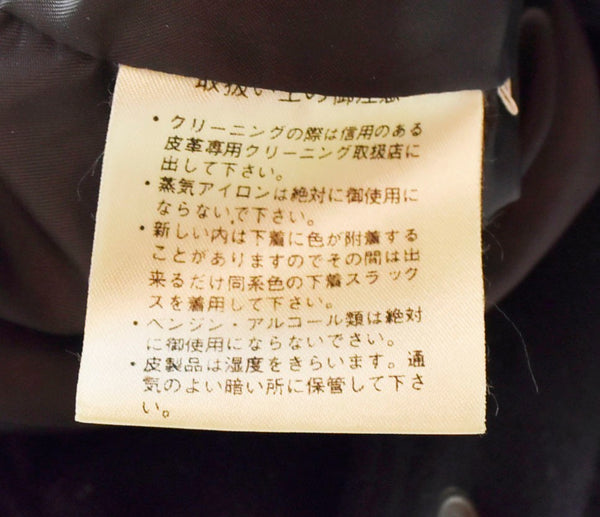 取扱い上の御注意
・クリーニングの際は信用のある
皮革専用クリーニング取扱店に
出して下さい。
・蒸気アイロンは絶対に御使用に
ならないで下さい。
・新しい内は下着に色が附着する
ことがありますのでその間は出
来るだけ同系色の下着スラック
スを着用して下さい。
・ベンジン・アルコール類は絶対
に御使用にならないでさい。
・皮製品は湿度をきらいます。通
気のよい暗い所に保管して下さ
い。